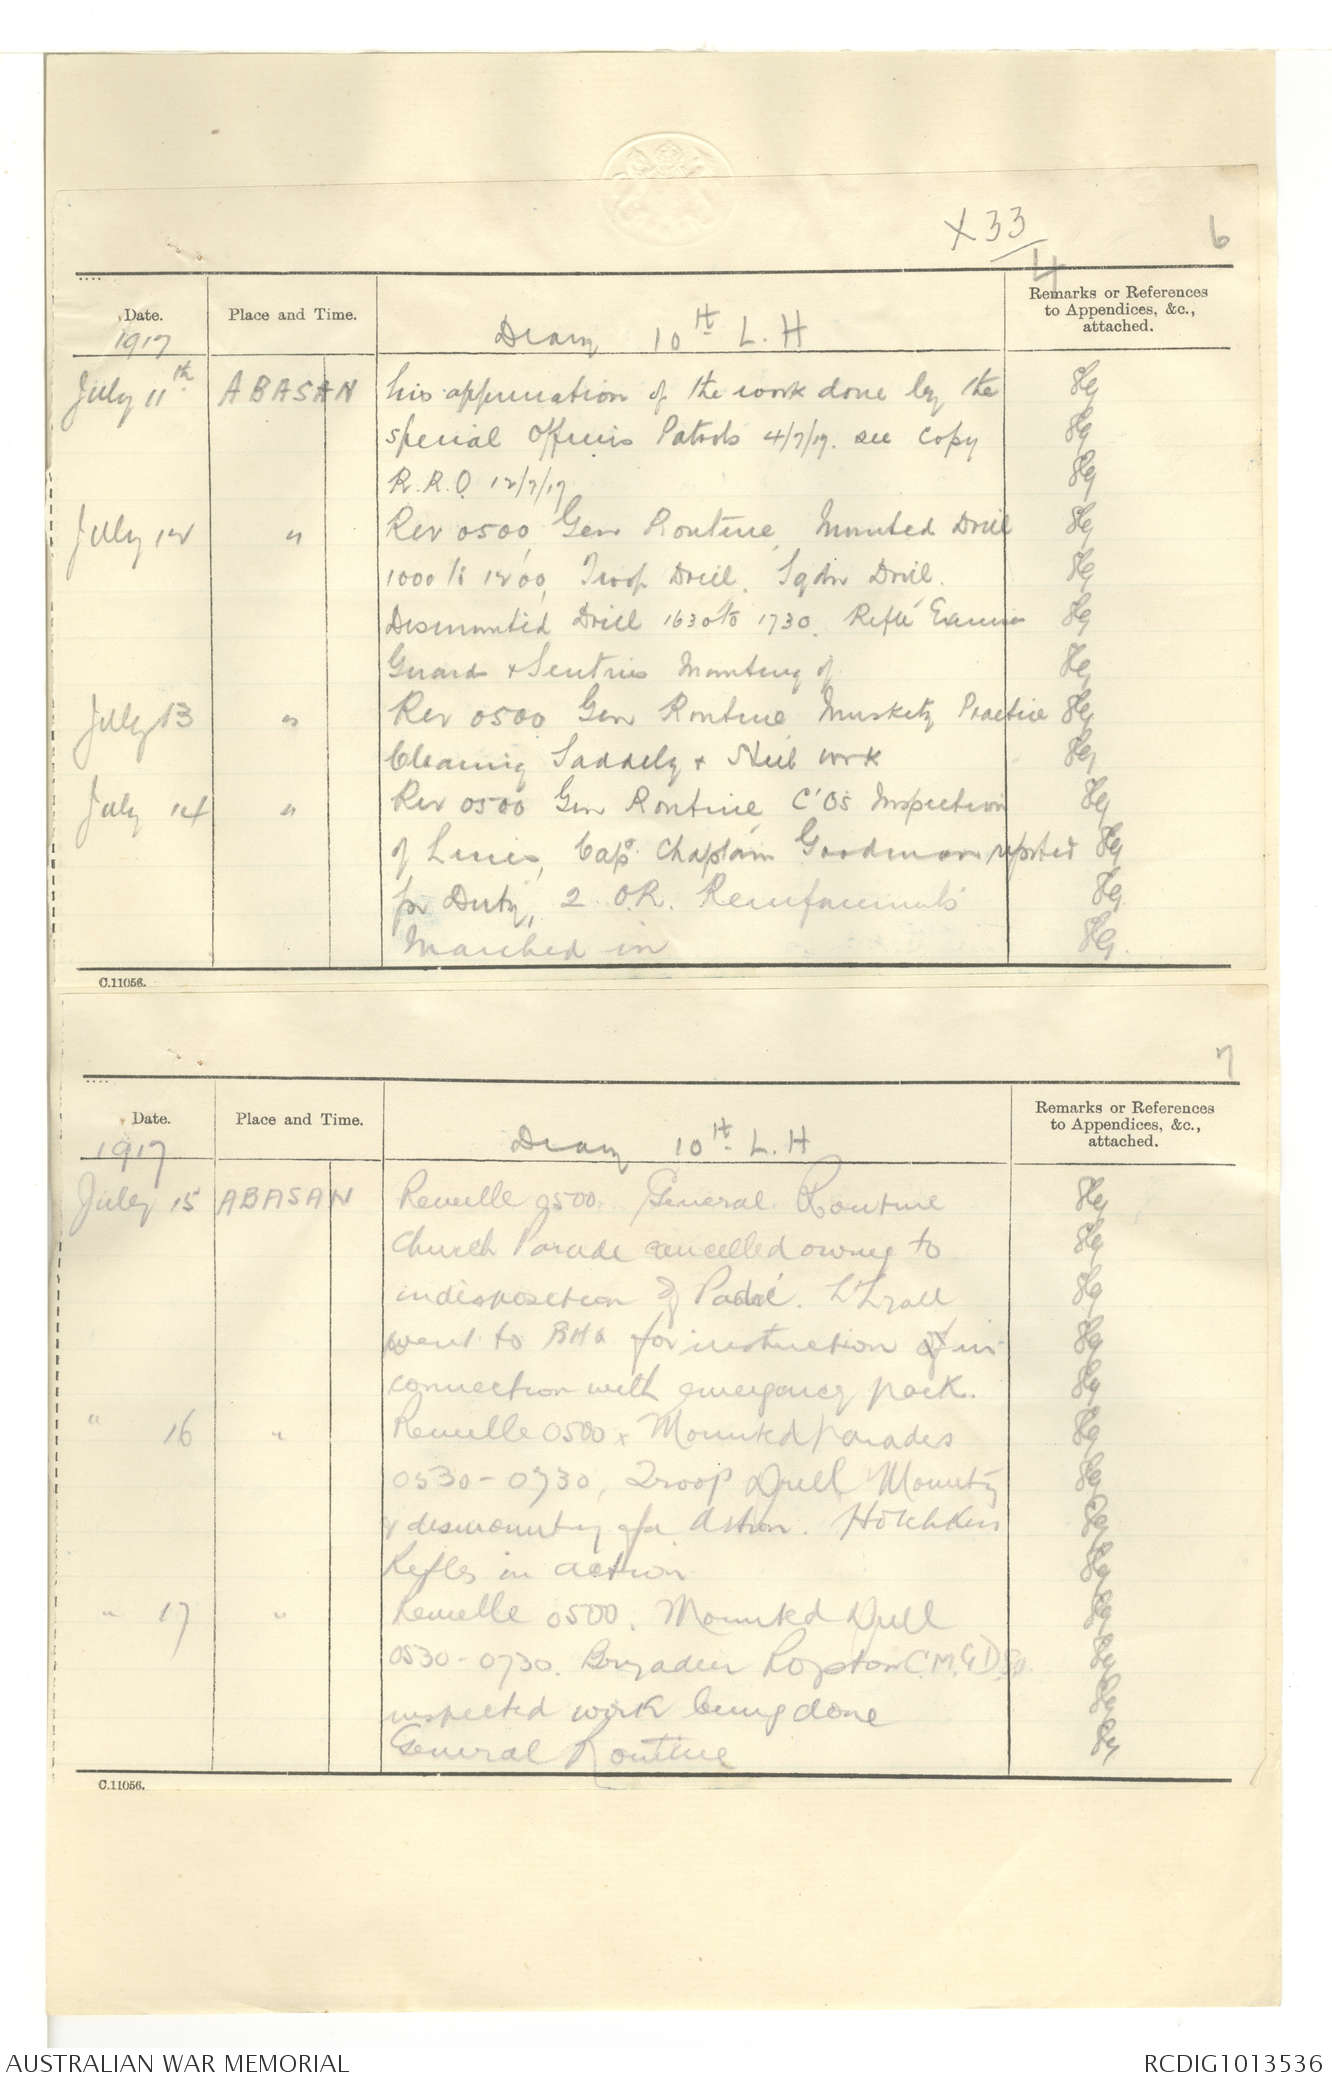 X 33/4
6
Date.
Place and Time.
Remarks or References
to Appendices, &c.,
attached.
1917
Diary 10th L.H
July 11th ABASAN his appreciation of the work done by the Hg
special Officers Patrols 4/7/17. see copy Hg
R.R.O. 12/7/17 Hg
July 12 " Rev 0500, Gen Routine, Mounted Drill Hg
1000 to 1200, Troop Drill. Sqdn Drill. Hg
Dismounted Drill 1630 to 1730. Rifle Exercise Hg
Guards & Sentries Mounting of Hg
July 13 " Rev 0500 Gen Routine Musketry Practice Hg
Cleaning Saddlery & Steel work Hg
July 14 " Rev 0500 Gen Routine, C'Os Inspection Hg
of Lines, Capt. Chaplain Goodman reported Hg
for Duty, 2 O.R. Reinforcements Hg
Marched in Hg
C.11056.
7
Date.
Place and Time.
Remarks or References
to Appendices, &c.,
attached.
1917
Diary 10th L.H
July 15 ABASAN Reveille 0500. General Routine Hg
Church Parade cancelled owing to Hg
indisposition of Padre. Lt Lyall Hg
went to BHQ for instruction of in Hg
connection with emergency pack. Hg
" 16 " Reveille 0500 Mounted parades Hg
0530-0730, Troop Drill Mounting Hg
& dismounting for Action. Hotchkiss Hg
Rifles in action Hg
" 17 " Reveille 0500. Mounted Drill Hg
0530-0730. Brigadier Royston C.M.G D.S.O. Hg
inspected work being done Hg
General Routine Hg
C.11056.
AUSTRALIAN WAR MEMORIAL
RCDIG1013536